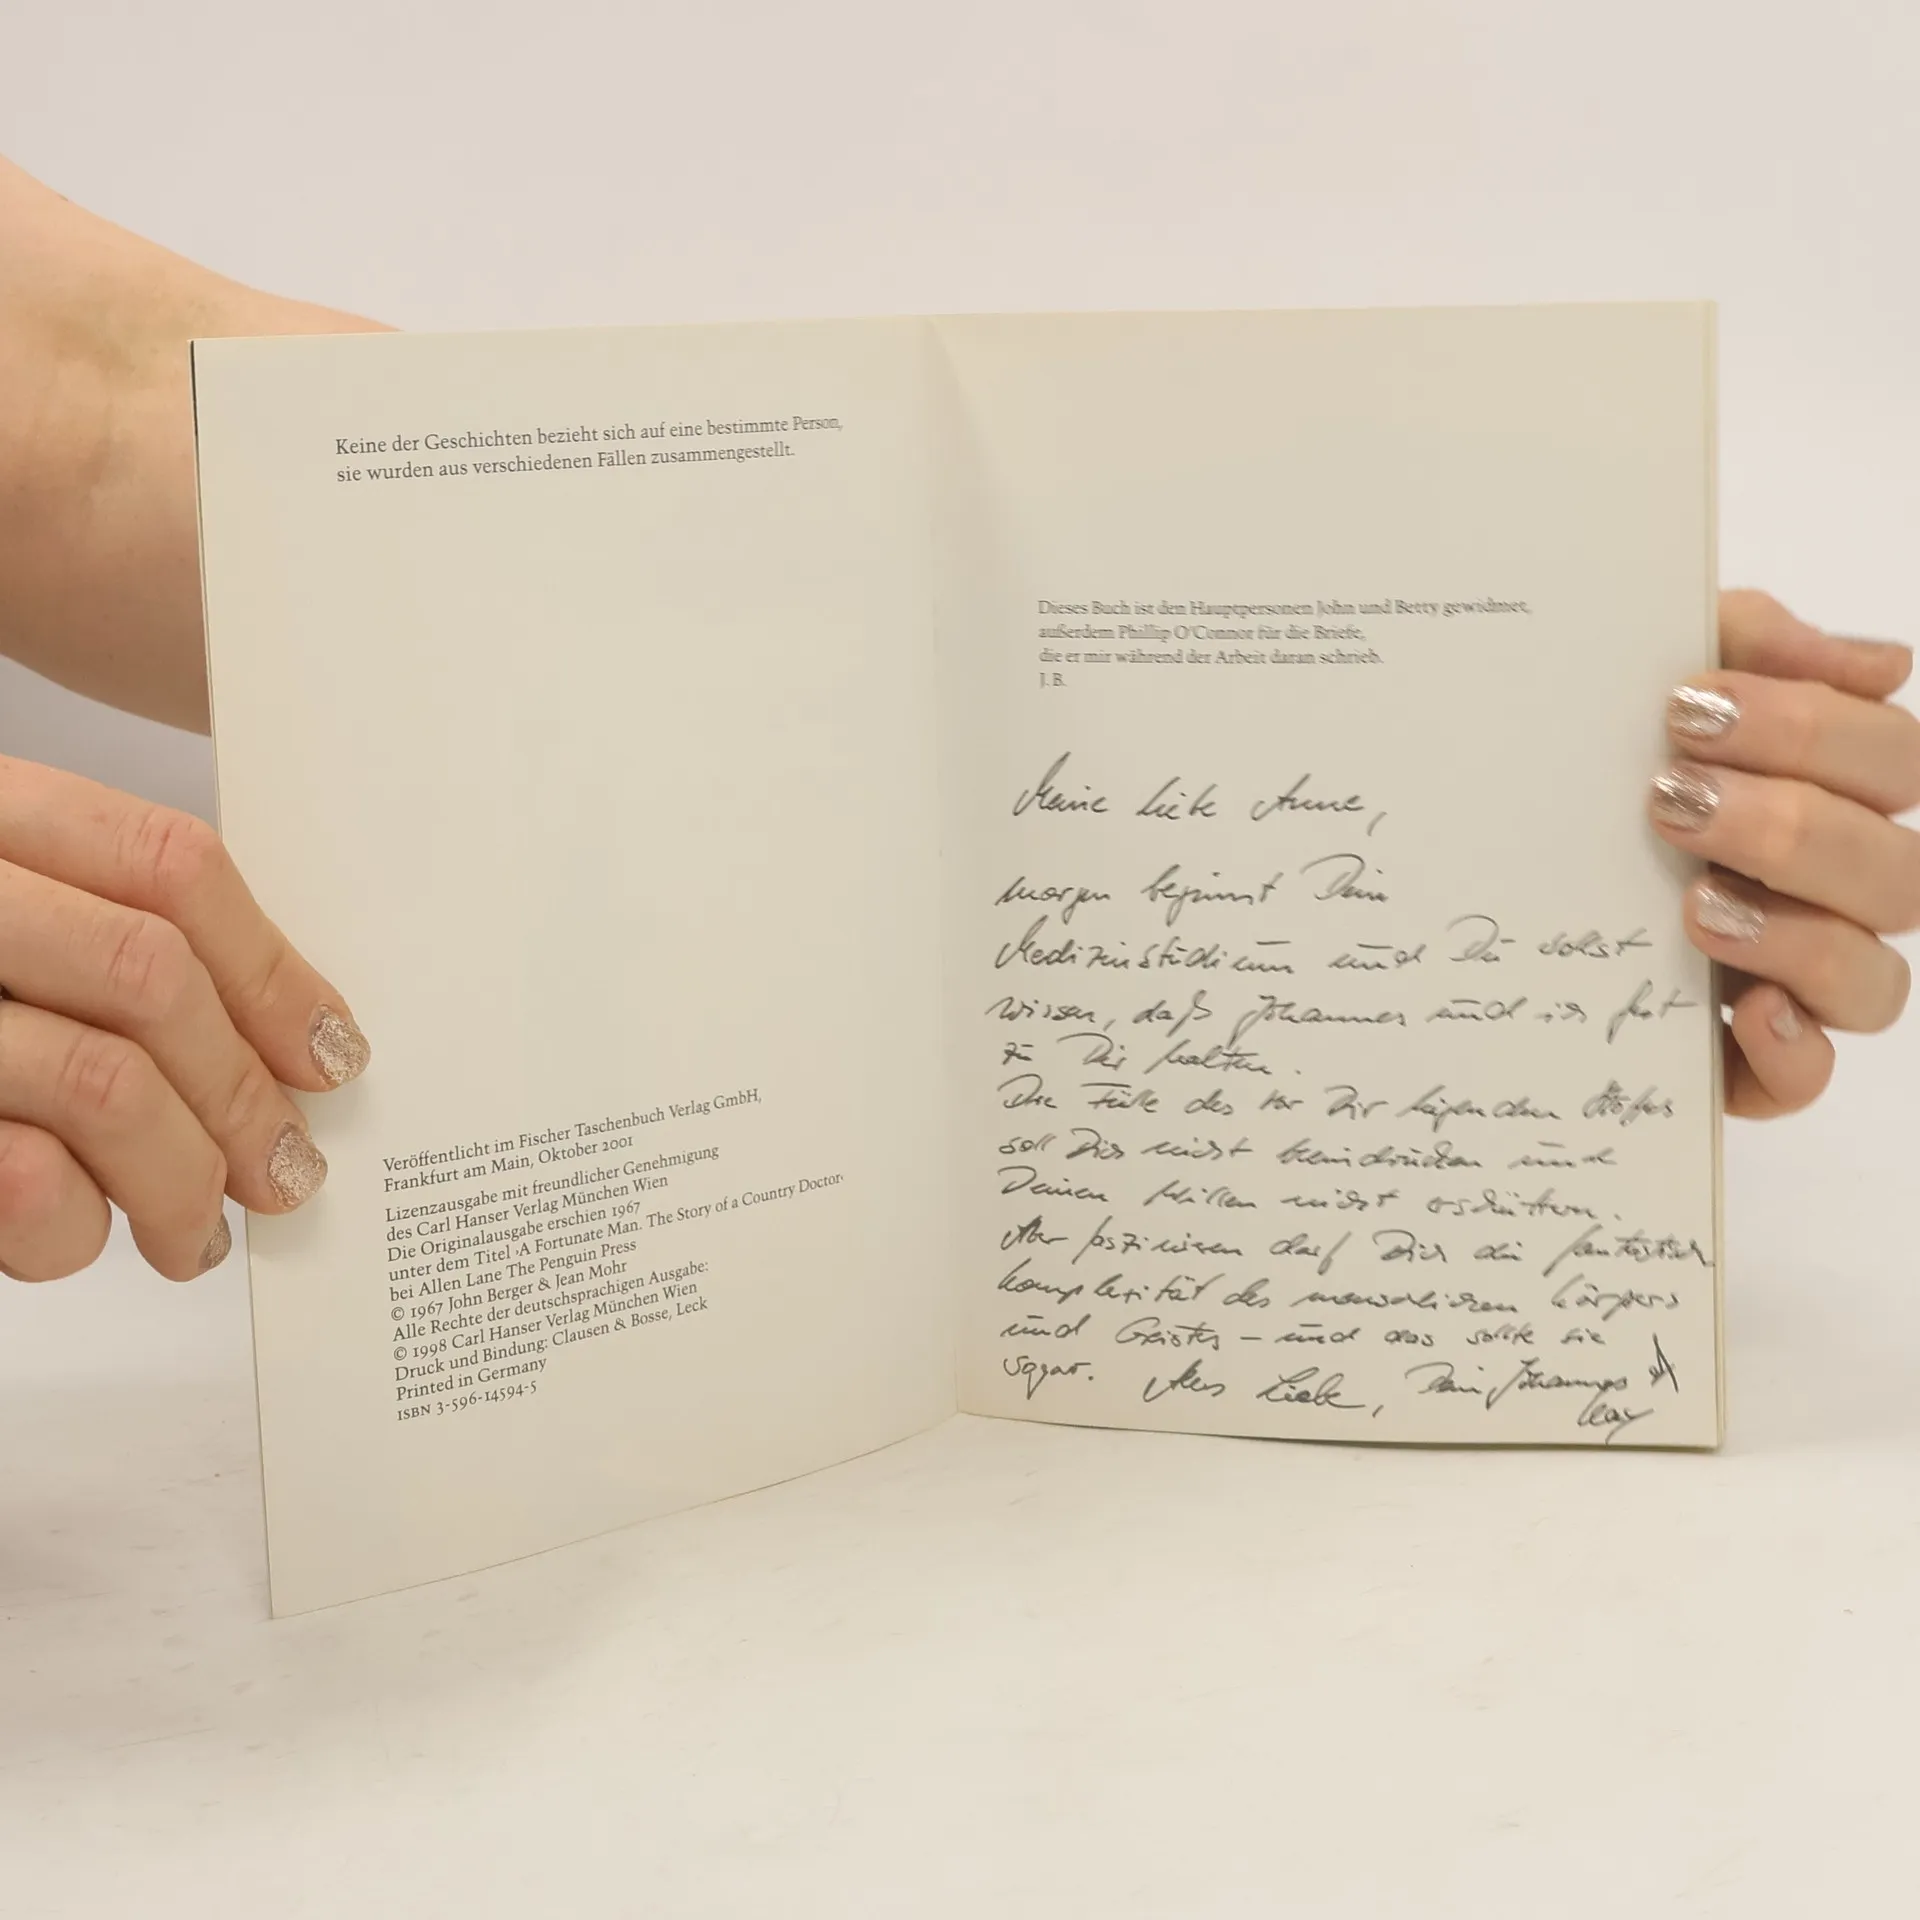 Keine der Geschichten bezieht sich auf eine bestimmte Person,
sie wurden aus verschiedenen Fällen zusammengestellt.
Veröffentlicht im Fischer Taschenbuch Verlag GmbH,
Frankfurt am Main, Oktober 2001
Lizenzausgabe mit freundlicher Genehmigung
des Carl Hanser Verlag München Wien
Die Originalausgabe erschien 1967
unter dem Titel ›A Fortunate Man. The Story of a Country Doctor‹
bei Allen Lane The Penguin Press
© 1967 John Berger & Jean Mohr
Alle Rechte der deutschsprachigen Ausgabe:
© 1998 Carl Hanser Verlag München Wien
Druck und Bindung: Clausen & Bosse, Leck
Printed in Germany
ISBN 3-596-14594-5
Dieses Buch ist den Hauptpersonen John und Betty gewidmet,
außerdem Phillip O'Connor für die Briefe,
die er mir während der Arbeit daran schrieb.
J. B.
Meine liebe Anne,
morgen beginnt Dein
Medizinstudium und Du sollst
wissen, daß Johannes und ich fest
zu Dir halten.
Die Fülle des vor Dir liegenden Stoffes
soll Dich nicht beeindrucken und
Deinen Willen nicht erschüttern.
Aber faszinieren darf Dich die
Komplexität des menschlichen Körpers
und Geistes – und das sollte sie
sogar. Aus Liebe, Dein Johannes